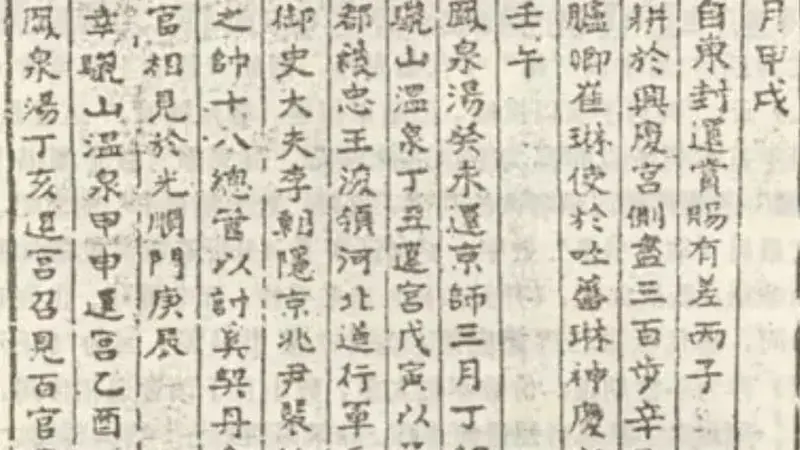 月甲戌
自東封還賞賜有差丙子
耕於興慶宮側盡三百步辛
臚卿崔琳使於吐蕃琳神慶
壬午
鳳泉湯癸未還京師三月丁
驪山溫泉丁丑還宮戊寅以
都護忠王浚領河北道行軍
御史大夫李朝隱京兆尹裴
之帥十八總管以討奚契丹
官相見於光順門庚辰
幸驪山溫泉甲申還宮乙酉
鳳泉湯丁亥還宮召見百官